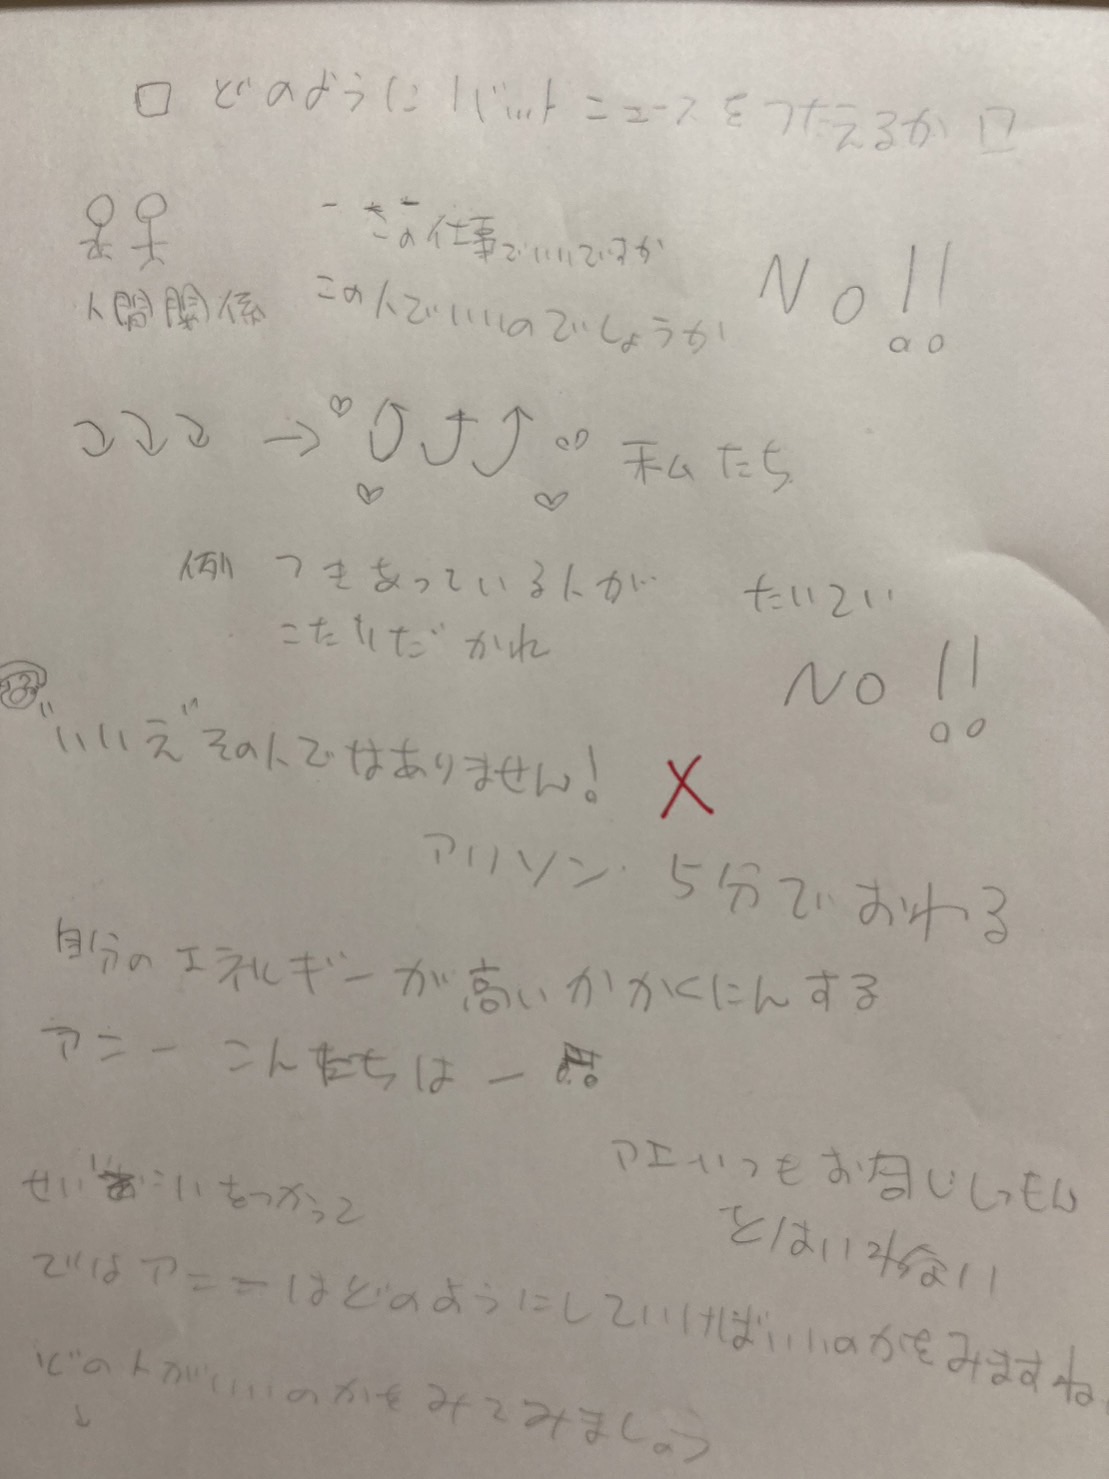 □ どのようにバットニュースをつたえるか □
この仕事でいいですか
人間関係
この人でいいのでしょうか
No!!
→ 私たち
例 つきあっている人が
たいてい
No!!
"いいえ"その人ではありません! X
アリソン 5分でおわる
自分のエネルギーが高いかかくにんする
アニー こんたちはー
をつかって
いつもお
とはいわない
ではアニーはどのようにしていけばいいのかをみますね
どの人がいいのかをみてみましょう
↓